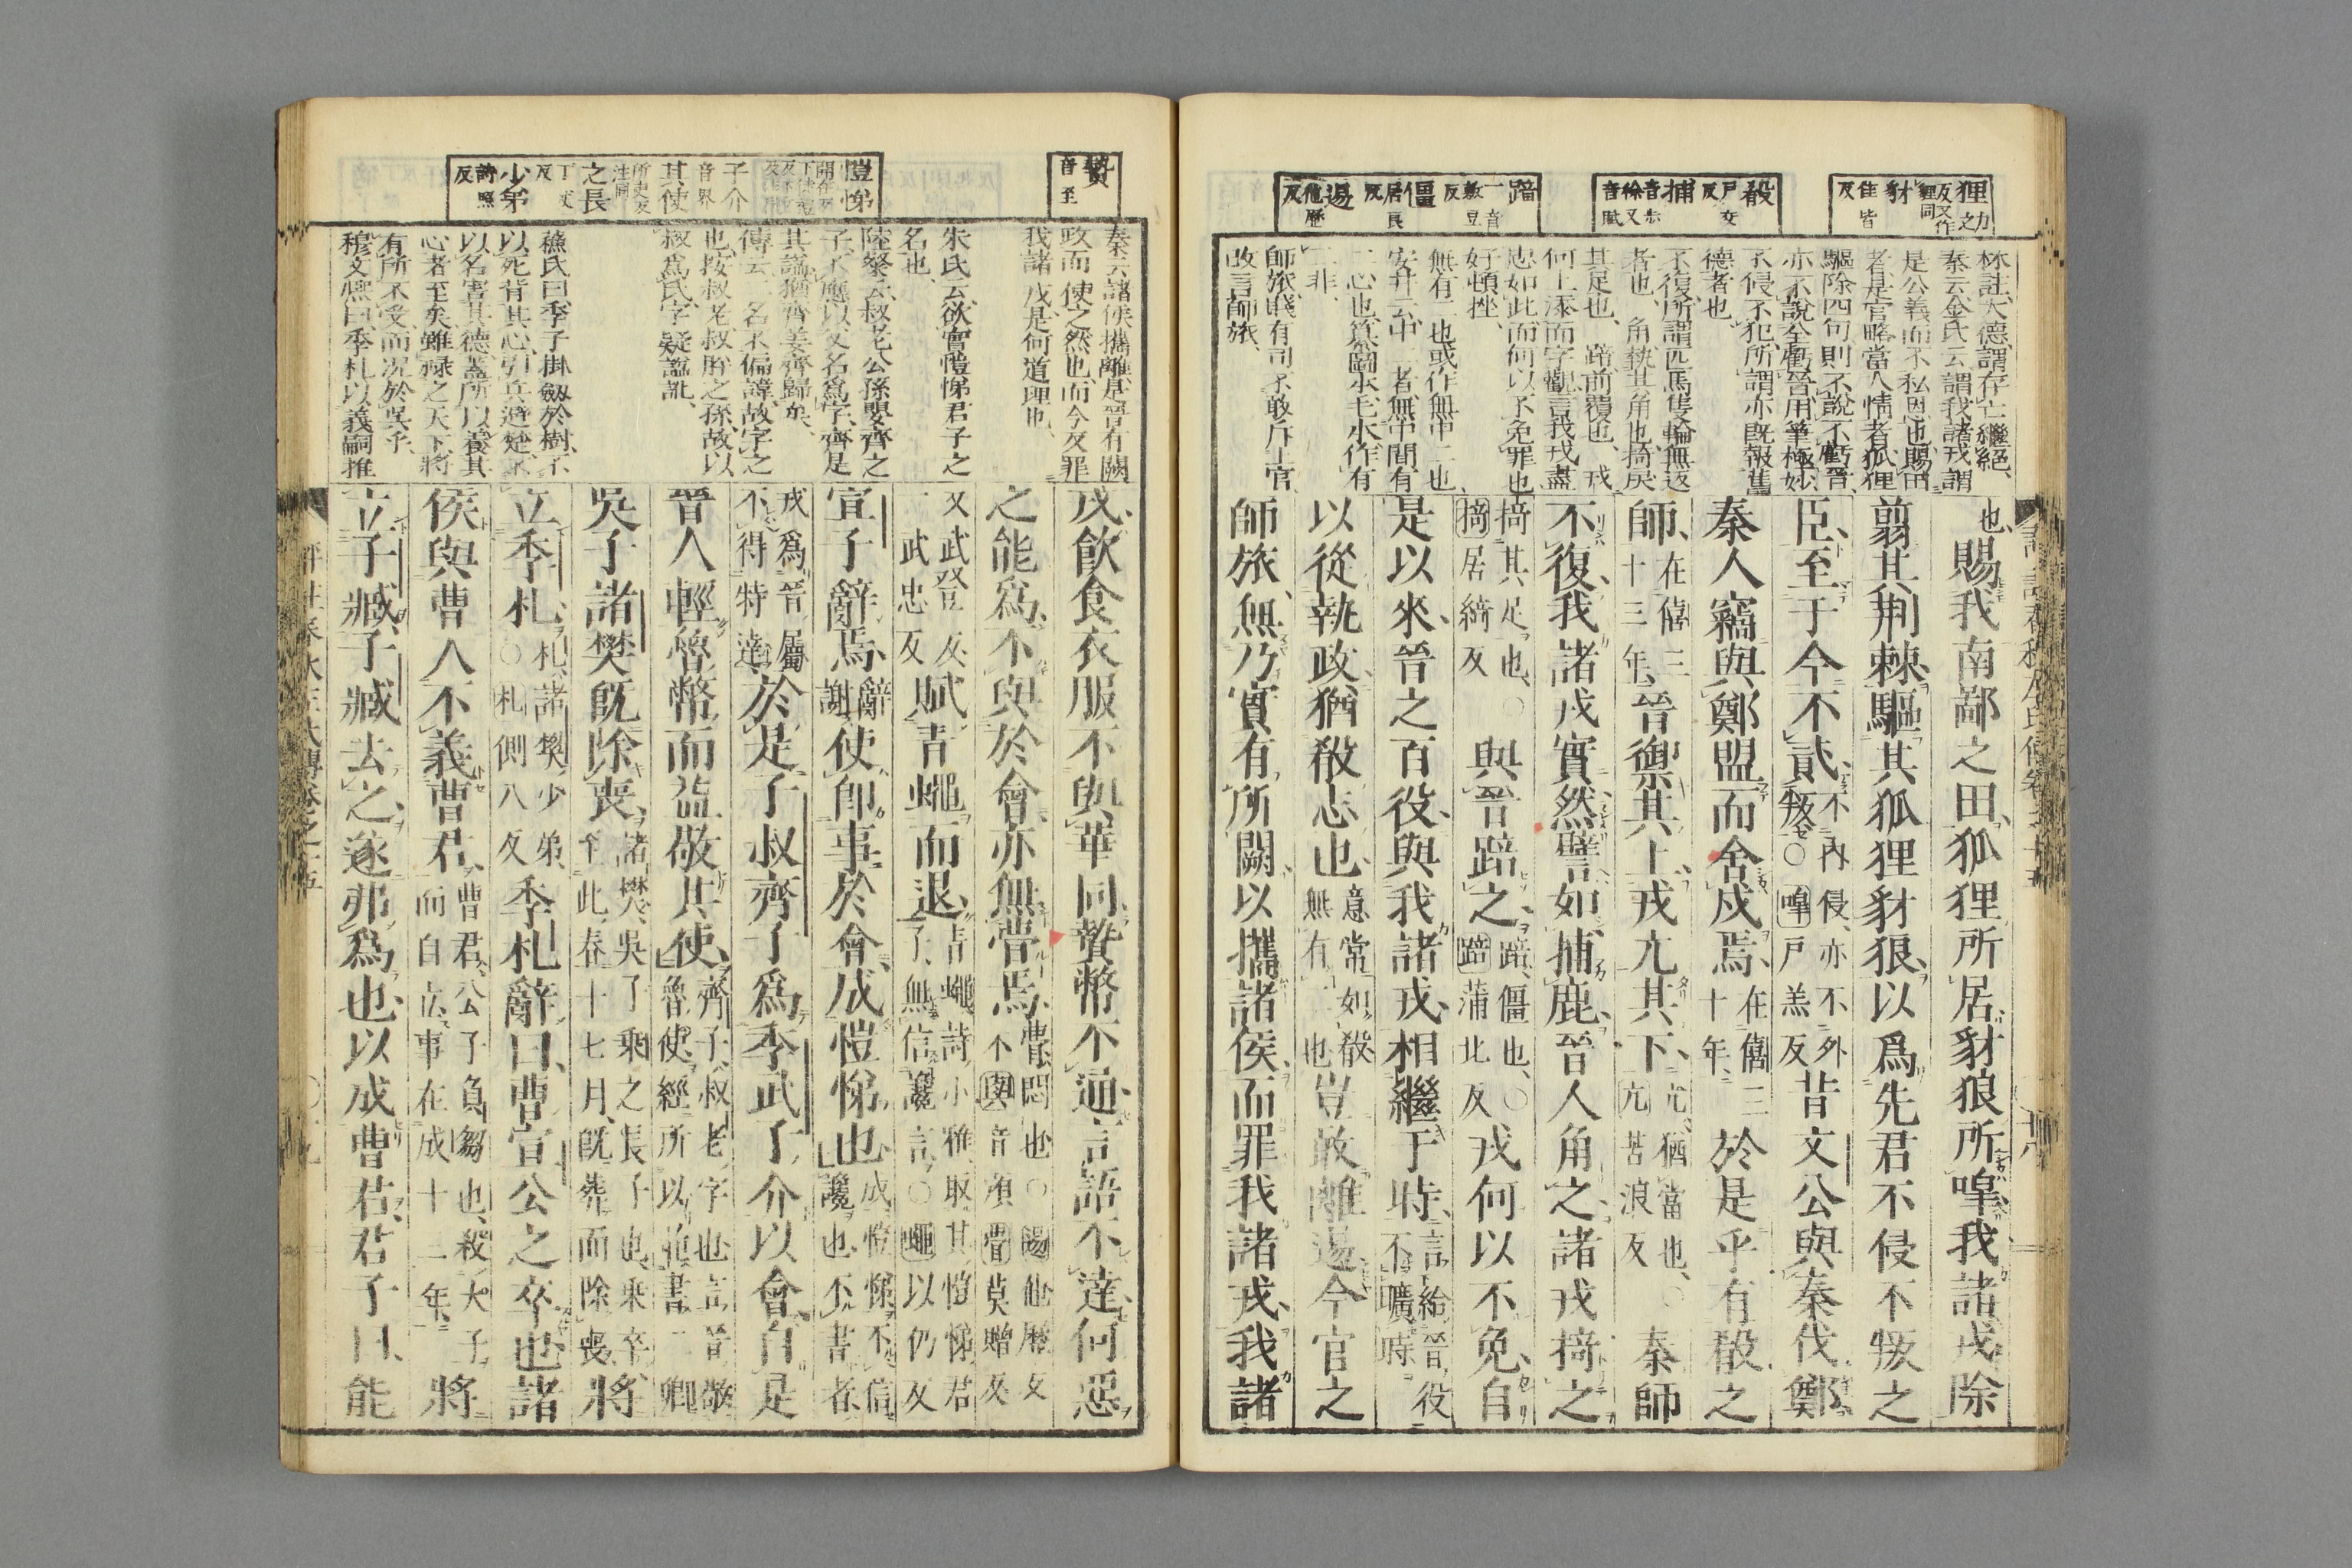 狸 力之反又作貍同 豺 仕皆反
殽 戶交反 捕 音步又音賦
踣 一音敷豆反 僵 居良反 逷 他歷反
林註大德謂存亡繼絕、
秦云金氏云謂我諸戎謂
是公義而不私恩也賜田
者是官略當人情者狐狸
驅除四句則不說不虧晉、
亦不說全虧晉用筆極妙、
不侵不犯所謂亦既報舊
德者也、
不復所謂匹馬隻輪無返
者也、 角執其角也掎戾
其足也、 踣前覆也、 戎
何上添而字觀言我戎盡
忠如此而何以不免罪也
好頓挫、
無有二也或作無中二也
安井云中二者無中間有
二心也箋圖本毛本作有
二非、
師旅賤有司不敢斥上官
故言師旅、
也、賜我南鄙之田、狐狸所居豺狼所嘷、我諸戎除
翦其荊棘、驅其狐狸豺狼、以爲先君不侵不叛之
臣、至于今不貳、不內侵、亦不外叛○嘷戶羔反昔文公與秦伐鄭、
秦人竊與鄭盟而舍戍焉、在僖三十年、於是乎有殽之
師、在僖三十三年、晉禦其上、戎亢其下、亢、猶當也、○亢苦浪反秦師
不復、我諸戎實然、譬如捕鹿、晉人角之、諸戎掎之、
掎其足也、○掎居綺反與晉踣之、踣、僵也、○踣蒲北反戎何以不免、自
是以來、晉之百役、與我諸戎、相繼于時、言給晉役不曠時、
以從執政、猶殽志也、意常如殽無有二也豈敢離逷、今官之
師旅、無乃實有所闕、以攜諸侯、而罪我諸戎、我諸
贄 音至
愷悌
子介 音界 其使 所吏反注同 之長 丁丈反 少弟 詩照反
秦云諸侯攜離是晉有闕
政而使之然也而今反罪
我諸戎是何道理也、
朱氏云欲實愷悌君子之
名也、
陸粲云叔老公孫嬰齊之
子不應以父名爲字、齊是
其謚猶齊姜齊歸矣、
傳云二名不偏諱故字之
也按叔老叔肸之孫故以
叔爲氏字疑謚訛、
蘓氏曰季子掛劔於樹不
以死背其心引兵避楚不
以名害其德蓋所以養其
心者至矣雖祿之天下將
有所不受而況於吳乎、
穆文熙曰季札以義嗣推
戎、飲食衣服不與華同、贄幣不通、言語不達、何惡
之能爲、不與於會、亦無瞢焉、瞢、悶也○逷他歷反不與音預瞢莫贈反
又武登反一武忠反賦青蠅而退、青蠅、詩小雅、取其愷悌君子、無信讒言、○蠅以仍反
宣子辭焉、辭謝使卽事於會、成愷悌也、成愷悌、不信讒也、不書者、
戎爲晉屬不得特達於是子叔齊子爲季武子介以會、自是
晉人輕魯幣、而益敬其使、齊子、叔老字也、言晉敬魯使、經所以並書二卿
吳子諸樊既除喪、諸樊、吳子乘之長子也、乘卒、至此春十七月、既葬而除喪、將
立季札、札、諸樊少弟、○札側八反季札辭曰、曹宣公之卒也、諸
侯與曹人不義曹君、曹君、公子負芻也、殺大子而自立、事在成十三年、將
立子臧、子臧去之、遂弗爲也、以成曹君、君子曰、能